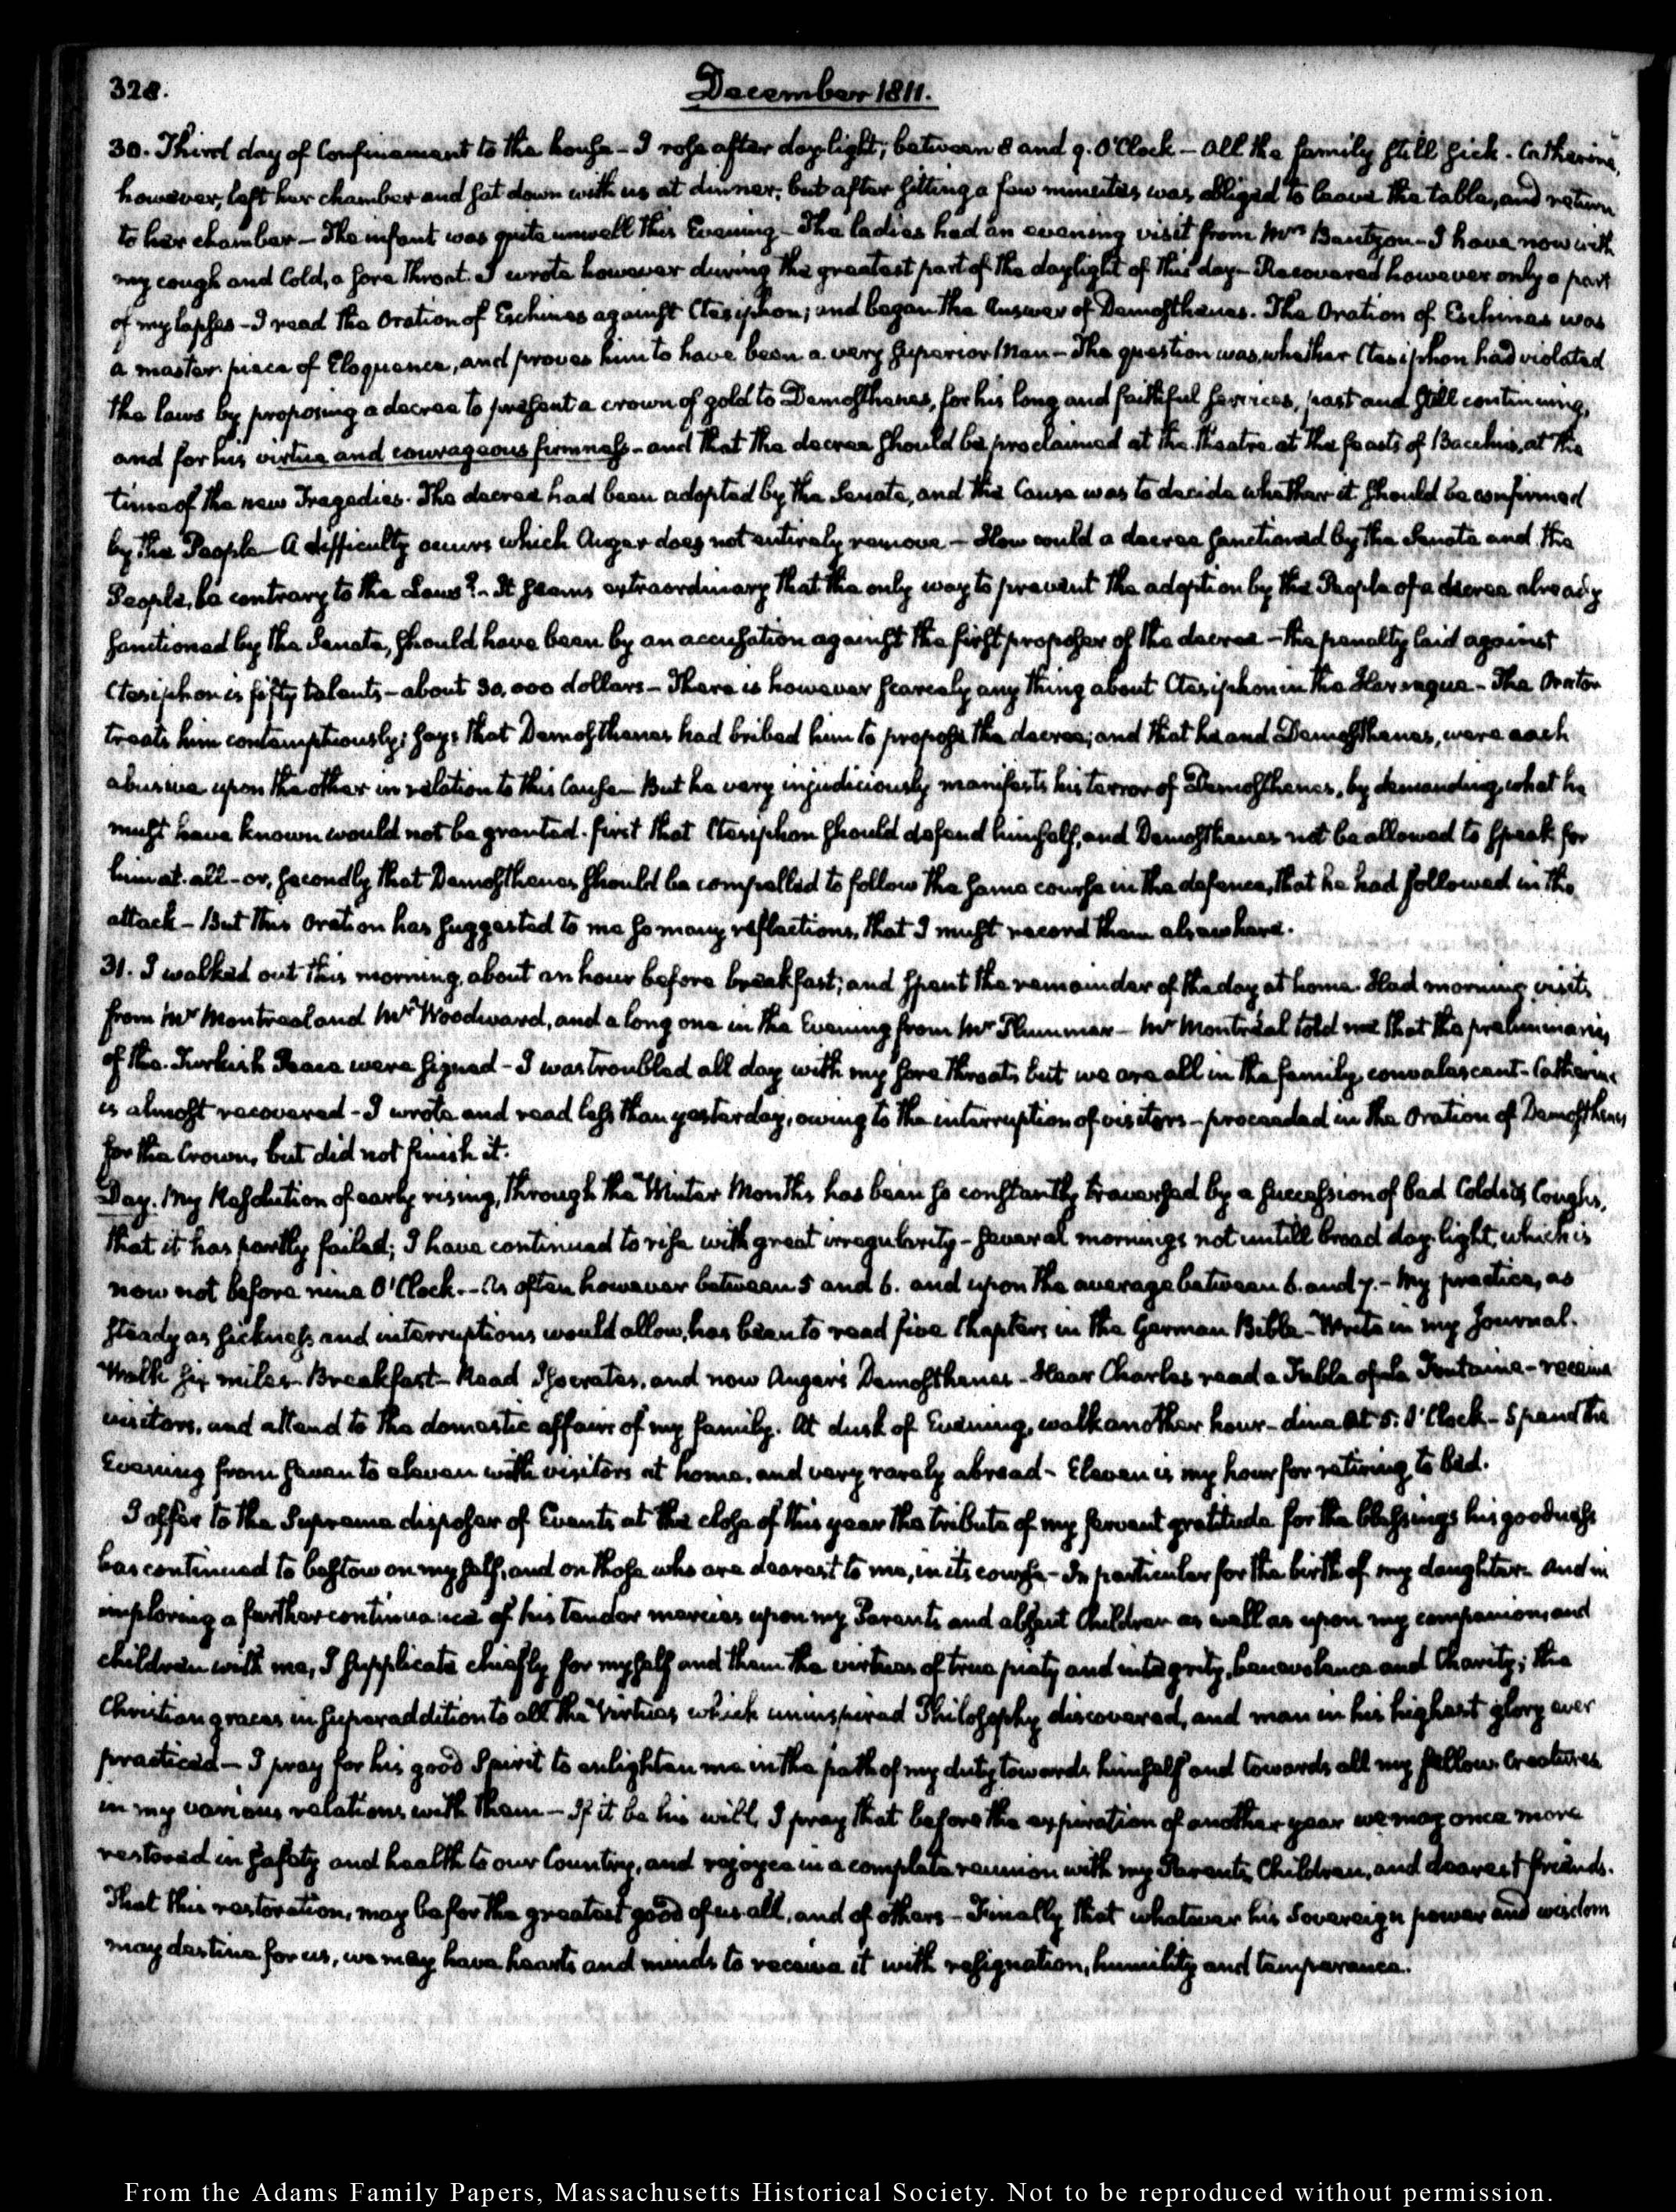 328.
December 1811.
30. Third day of Confinement to the house - I rose after day-light; between 8 and 9. O'Clock - All the family still sick. Catherine,
however, left her chamber and sat down with us at dinner; but after sitting a few minutes was obliged to leave the table, and return
to her chamber - The infant was quite unwell this Evening - The ladies had an evening visit from Mrs Bentzon - I have now with
my cough and Cold, a sore throat. I wrote however during the greatest part of the daylight of this day - Recovered however only a part
of my lapses - I read the Oration of Eschines against Ctesiphon; and began the Answer of Demosthenes. The Oration of Eschines was
a master-piece of Eloquence, and proves him to have been a very superior Man - The question was, whether Ctesiphon had violated
the laws by proposing a decree to present a crown of gold to Demosthenes, for his long and faithful services, past and still continuing,
and for his virtue and courageous firmness - and that the decree should be proclaimed at the theatre at the feasts of Bacchus, at the
time of the new Tragedies. The decree had been adopted by the Senate, and this Cause was to decide whether it should be confirmed
by the People - A difficulty occurs which Auger does not entirely remove - How could a decree sanctioned by the Senate and the
People, be contrary to the Laws? - It seems extraordinary that the only way to prevent the adoption by the People of a decree already
sanctioned by the Senate, should have been by an accusation against the first proposer of the decree - the penalty laid against
Ctesiphon is fifty talents - about 30,000 dollars - There is however scarcely any thing about Ctesiphon in the Harangue - The Orator
treats him contemptuously; says that Demosthenes had bribed him to propose the decree; and that he and Demosthenes, were each
abusive upon the other in relation to this Cause - But he very injudiciously manifests his terror of Demosthenes, by demanding, what he
must have known would not be granted. first that Ctesiphon should defend himself, and Demosthenes not be allowed to speak for
him at all - or, secondly that Demosthenes should be compelled to follow the same course in the defence, that he had followed in the
attack - But this Oration has suggested to me so many reflections, that I must record them elsewhere.
31. I walked out this morning, about an hour before breakfast; and spent the remainder of the day at home. Had morning visits
from Mr Montreal and Mr Woodward, and a long one in the Evening from Mr Plummer - Mr Montréal told me that the preliminaries
of the Turkish Peace were signed - I was troubled all day with my sore throat; but we are all in the family, convalescent - Catherine
is almost recovered - I wrote and read less than yesterday, owing to the interruption of visitors - proceeded in the Oration of Demosthenes
for the Crown, but did not finish it.
Day. My Resolution of early rising, through the Winter Months has been so constantly traversed by a succession of bad Colds & Coughs,
that it has partly failed; I have continued to rise with great irregularity - several mornings not untill broad day-light, which is
now not before nine O'Clock. - As often however between 5 and 6. and upon the average between 6. and 7. - My practice, as
steady as sickness and interruptions would allow, has been to read five Chapters in the German Bible - Write in my Journal.
Walk six miles - Breakfast - Read Isocrates, and now Auger's Demosthenes - Hear Charles read a Fable of La Fontaine - receive
visitors, and attend to the domestic affairs of my family. At dusk of Evening, walk another hour - dine at 5. O'Clock - Spend the
Evening from seven to eleven with visitors at home, and very rarely abroad - Eleven is my hour for retiring to bed.
I offer to the Supreme disposer of Events at the close of this year the tribute of my fervent gratitude for the blessings his goodness
has continued to bestow on myself, and on those who are dearest to me, in its course - In particular for the birth of my daughter. And in
imploring a further continuance of his tender mercies upon my Parents and absent Children as well as upon my companion, and
children with me, I supplicate chiefly for myself and them the virtues of true piety and integrity, benevolence and Charity; the
Christian graces in superaddition to all the Virtues which uninspired Philosophy discovered, and man in his highest glory ever
practiced - I pray for his good Spirit to enlighten me in the path of my duty towards himself and towards all my fellow Creatures
in my various relations with them - If it be his will, I pray that before the expiration of another year we may once more
restored in safety and health to our Country, and rejoyce in a complete reunion with my Parents, Children, and dearest friends.
That this restoration, may be for the greatest good of us all, and of others - Finally that whatever his Sovereign power and wisdom
may destine for us, we may have hearts and minds to receive it with resignation, humility and temperance.
From the Adams Family Papers, Massachusetts Historical Society. Not to be reproduced without permission.